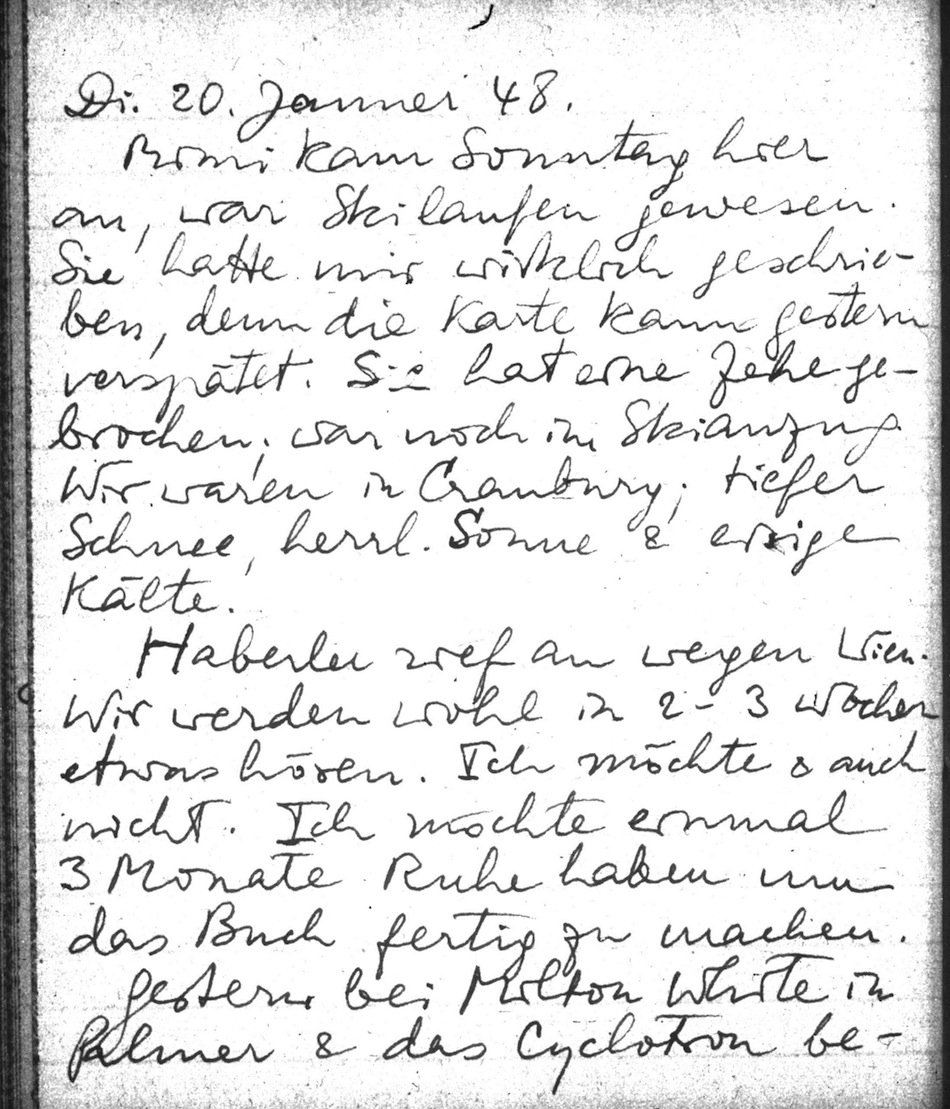 Di. 20. Jänner 48.
Mimi kam Sonntag hier
an, war Skilaufen gewesen.
Sie hatte mir wirklich geschrie-
ben, denn die Karte kam gestern
verspätet. Sie hat eine Zehe ge-
brochen; war noch im Skianzug.
Wir waren in Cranbury; tiefer
Schnee, herrl. Sonne & eisige
Kälte.
Haberler rief an wegen Wien.
Wir werden wohl in 2-3 Wochen
etwas hören. Ich möchte & auch
nicht. Ich möchte einmal
3 Monate Ruhe haben um
das Buch fertig zu machen.
Gestern bei Milton White in
Palmer & das Cyclotron be-